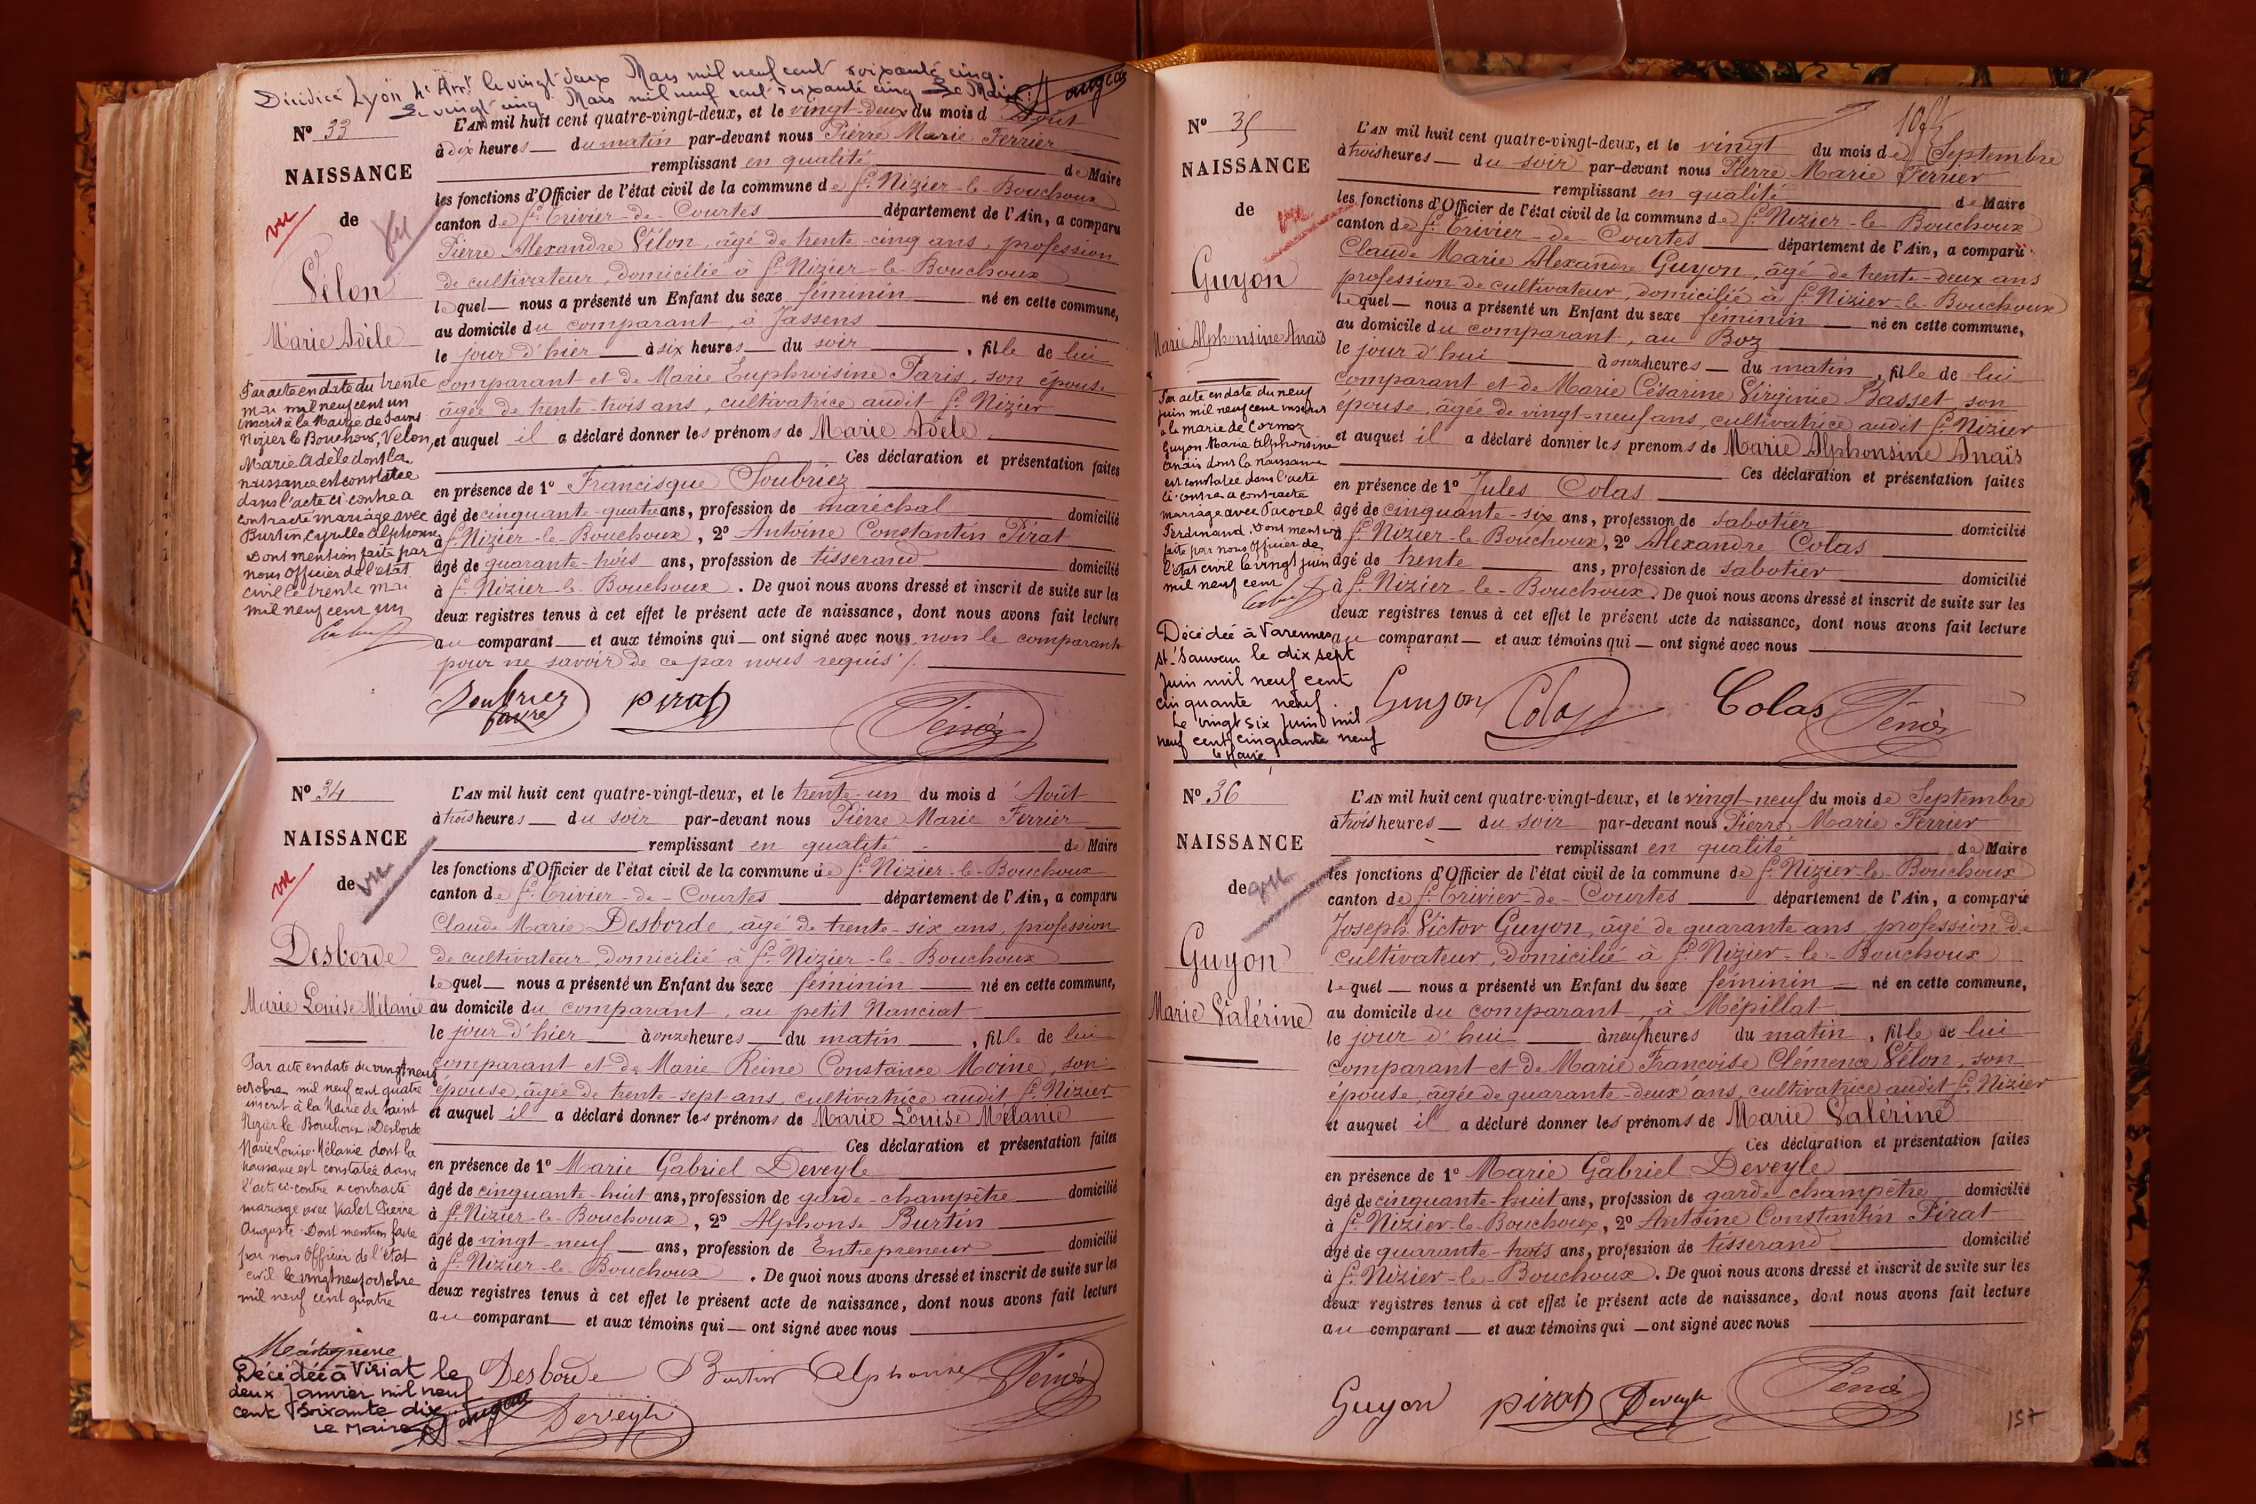 Décédée Lyon 4e Arrt le vingt deux Mars mil neuf cent soixante cinq.
Le vingt cinq Mars mil neuf cent soixante cinq Le Maire
No 33
NAISSANCE
de
vu
vu
Vélon
Marie Adèle
L'AN mil huit cent quatre-vingt-deux, et le vingt-deux du mois d'Août
à dix heures du matin par-devant nous Pierre Marie Ferrier
remplissant en qualité de Maire
les fonctions d'Officier de l'état civil de la commune de St Nizier-le-Bouchoux
canton de St Trivier-de-Courtes département de l'Ain, a comparu
Pierre Alexandre Vélon, âgé de trente-cinq ans, profession
de cultivateur, domicilié à St Nizier-le-Bouchoux
lequel nous a présenté un Enfant du sexe féminin né en cette commune,
au domicile du comparant, à Jassens
le jour d'hier à six heures du soir, fille de lui
comparant et de Marie Euphroisine Paris, son épouse
âgée de trente-trois ans, cultivatrice audit St Nizier
et auquel il a déclaré donner les prénoms de Marie Adèle
Ces déclaration et présentation faites
en présence de 1o Francisque Soubriez
âgé de cinquante-quatre ans, profession de maréchal domicilié
à St Nizier-le-Bouchoux, 2o Antoine Constantin Pirat
âgé de quarante-trois ans, profession de tisserand domicilié
à St Nizier-le-Bouchoux. De quoi nous avons dressé et inscrit de suite sur les
deux registres tenus à cet effet le présent acte de naissance, dont nous avons fait lecture
au comparant et aux témoins qui ont signé avec nous non le comparant
pour ne savoir de ce par nous requis /.
Soubriez
pirat
Par acte en date du trente
mai mil neuf cent un
inscrit à la Mairie de Saint
Nizier le Bouchoux, Vélon,
Marie Adèle dont la
naissance est constatée
dans l'acte ci contre a
contracté mariage avec
Burtin, Cyrille Alphonse
Dont mention faite par
nous Officier de l'état
civil le trente mai
mil neuf cent un
No 34
NAISSANCE
de
vu
vu
Desborde
Marie Louise Mélanie
L'AN mil huit cent quatre-vingt-deux, et le trente-un du mois d'Août
à trois heures du soir par-devant nous Pierre Marie Ferrier
remplissant en qualité de Maire
les fonctions d'Officier de l'état civil de la commune de St Nizier-le-Bouchoux
canton de St Trivier-de-Courtes département de l'Ain, a comparu
Claude Marie Desborde, âgé de trente-six ans, profession
de cultivateur, domicilié à St Nizier-le-Bouchoux
lequel nous a présenté un Enfant du sexe féminin né en cette commune,
au domicile du comparant, au petit Nanciat
le jour d'hier à onze heures du matin, fille de lui
comparant et de Marie Reine Constance Moine, son
épouse, âgée de trente-sept ans, cultivatrice audit St Nizier
et auquel il a déclaré donner les prénoms de Marie Louise Mélanie
Ces déclaration et présentation faites
en présence de 1o Marie Gabriel Deveyle
âgé de cinquante-huit ans, profession de garde-champêtre domicilié
à St Nizier-le-Bouchoux, 2o Alphonse Burtin
âgé de vingt-neuf ans, profession de Entrepreneur domicilié
à St Nizier-le-Bouchoux. De quoi nous avons dressé et inscrit de suite sur les
deux registres tenus à cet effet le présent acte de naissance, dont nous avons fait lecture
au comparant et aux témoins qui ont signé avec nous
Desborde Burtin Alphonse
Deveyle
Par acte en date du vingt neuf
octobre mil neuf cent quatre
inscrit à la Mairie de Saint
Nizier le Bouchoux, Desborde
Marie Louise Mélanie dont la
naissance est constatée dans
l'acte ci-contre a contracté
mariage avec Valet Pierre
Auguste. Dont mention faite
par nous Officier de l'état
civil le vingt neuf octobre
mil neuf cent quatre
Décédée à Viriat le
deux Janvier mil neuf
cent soixante dix
Le Maire
No 35
NAISSANCE
de
vu
Guyon
Marie Alphonsine Anaïs
L'AN mil huit cent quatre-vingt-deux, et le vingt du mois de Septembre
à trois heures du soir par-devant nous Pierre Marie Ferrier
remplissant en qualité de Maire
les fonctions d'Officier de l'état civil de la commune de St Nizier-le-Bouchoux
canton de St Trivier-de-Courtes département de l'Ain, a comparu
Claude Marie Alexandre Guyon, âgé de trente-deux ans
profession de cultivateur, domicilié à St Nizier-le-Bouchoux
lequel nous a présenté un Enfant du sexe féminin né en cette commune,
au domicile du comparant, au Boz
le jour d'hui à onze heures du matin, fille de lui
comparant et de Marie Césarine Virginie Basset, son
épouse, âgée de vingt-neuf ans, cultivatrice audit St Nizier
et auquel il a déclaré donner les prénoms de Marie Alphonsine Anaïs
Ces déclaration et présentation faites
en présence de 1o Jules Colas
âgé de cinquante-six ans, profession de sabotier domicilié
à St Nizier-le-Bouchoux, 2o Alexandre Colas
âgé de trente ans, profession de sabotier domicilié
à St Nizier-le-Bouchoux. De quoi nous avons dressé et inscrit de suite sur les
deux registres tenus à cet effet le présent acte de naissance, dont nous avons fait lecture
au comparant et aux témoins qui ont signé avec nous
Guyon Colas Colas
Par acte en date du neuf
juin mil neuf cent inscrit
à la mairie de Cormoz
Guyon Marie Alphonsine
Anaïs dont la naissance
est constatée dans l'acte
ci-contre a contracté
mariage avec Pacorel
Ferdinand. Dont mention
faite par nous Officier de
l'état civil le vingt juin
mil neuf cent
Décédée à Varennes
St Sauveur le dix sept
Juin mil neuf cent
cinquante neuf.
Le vingt six Juin mil
neuf cent cinquante neuf
Le Maire,
No 36
NAISSANCE
de
Guyon
Marie Valérine
L'AN mil huit cent quatre-vingt-deux, et le vingt-neuf du mois de Septembre
à trois heures du soir par-devant nous Pierre Marie Ferrier
remplissant en qualité de Maire
les fonctions d'Officier de l'état civil de la commune de St Nizier-le-Bouchoux
canton de St Trivier-de-Courtes département de l'Ain, a comparu
Joseph Victor Guyon, âgé de quarante ans, profession de
cultivateur, domicilié à St Nizier-le-Bouchoux
lequel nous a présenté un Enfant du sexe féminin né en cette commune,
au domicile du comparant, à Mépillat
le jour d'hui à neuf heures du matin, fille de lui
comparant et de Marie Françoise Clémence Vélon, son
épouse, âgée de quarante-deux ans, cultivatrice audit St Nizier
et auquel il a déclaré donner les prénoms de Marie Valérine
Ces déclaration et présentation faites
en présence de 1o Marie Gabriel Deveyle
âgé de cinquante-huit ans, profession de garde-champêtre domicilié
à St Nizier-le-Bouchoux, 2o Antoine Constantin Pirat
âgé de quarante-trois ans, profession de tisserand domicilié
à St Nizier-le-Bouchoux. De quoi nous avons dressé et inscrit de suite sur les
deux registres tenus à cet effet le présent acte de naissance, dont nous avons fait lecture
au comparant et aux témoins qui ont signé avec nous
Guyon pirat Deveyle
157